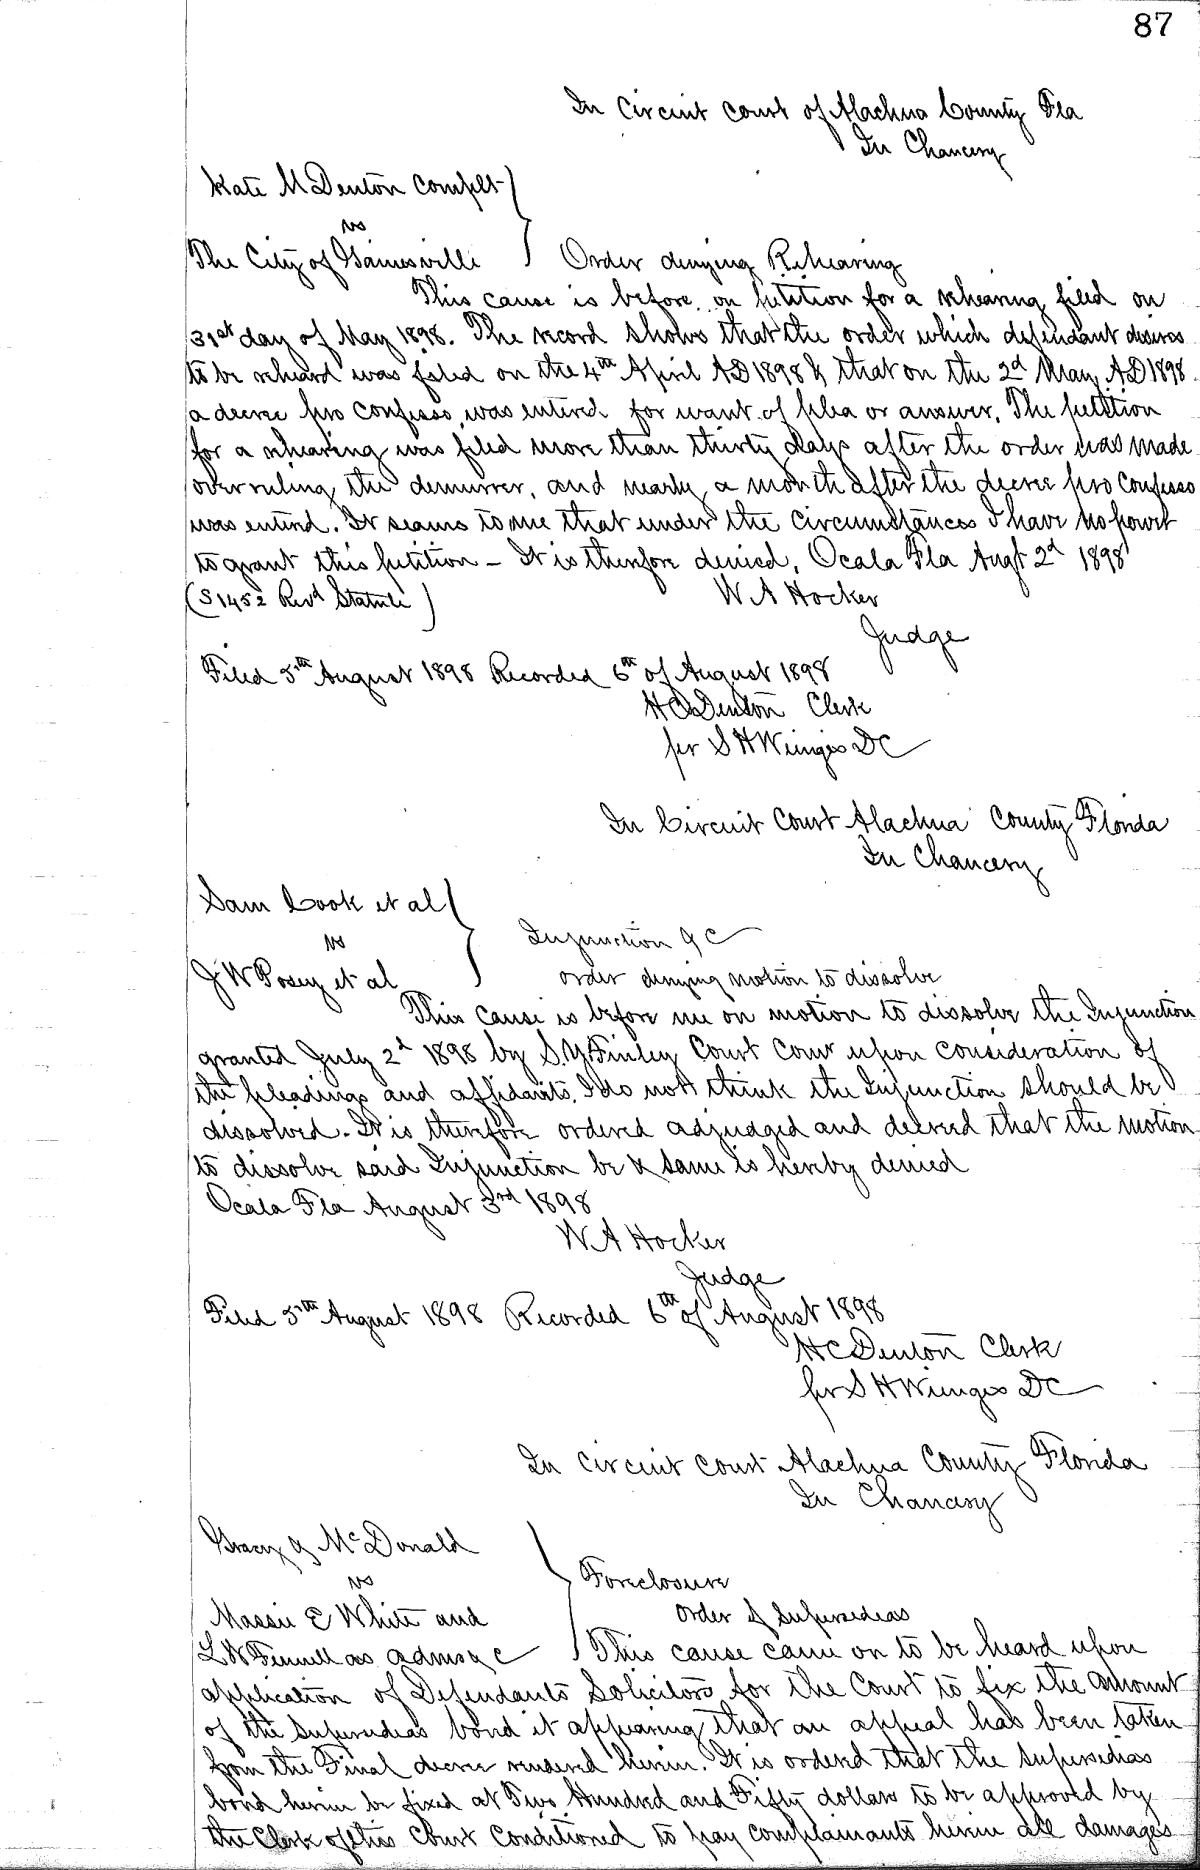 87
In Circuit Court of Alachua County Fla
In Chancery
Kate M Denton Complt
vs
The City of Gainesville Order denying Rehearing
This cause is before on petition for a rehearing filed on
31st day of May 1898. The record shows that the order which defendant desires
to be reheard was filed on the 4th April AD 1898 & that on the 2d May AD 1898
a decree pro confesso, was entered for want of plea or answer. The petition
for a rehearing was filed more than thirty days after the order was made
overruling the demurrer, and nearly a month after the decree pro confesso
was entered. It seems to me that under the circumstances I have no power
to grant this petition - It is therefore denied, Ocala Fla Augt 2d 1898
(S 1452 Revd Statute) W A Hocker
Judge
Filed 5th August 1898 Recorded 6th of August 1898
H C Denton Clerk
per S H Wienges DC
In Circuit Court Alachua County Florida
In Chancery
Sam Cook et al
vs
Injunction &C
J W Posey et al order denying motion to dissolve
This cause is before me on motion to dissolve the Injunction
granted July 2d 1898 by S.Y. Finley Court Comr upon consideration of
the pleadings and affidavits, I do not think the Injunction should be
dissolved. It is therefore ordered adjudged and decreed that the motion
to dissolve said Injunction be & same is hereby denied
Ocala Fla August 3rd 1898
W A Hocker
Judge
Filed 5th August 1898 Recorded 6th of August 1898
H C Denton Clerk
per S H Wienges DC
In Circuit Court Alachua County Florida
In Chancery
McDonald
vs
Foreclosure
Massie E White and order of supersedeas
L W Fennell as admsr &c This cause came on to be heard upon
application of Defendants Solicitors for the Court to fix the amount
of the supersedeas bond it appearing that an appeal has been taken
from the Final decree rendered herein. It is ordered that the supersedias
bond herein be fixed at Two Hundred and Fifty dollars to be approved by
the Clerk of this Court conditioned to pay complainants herein all damages